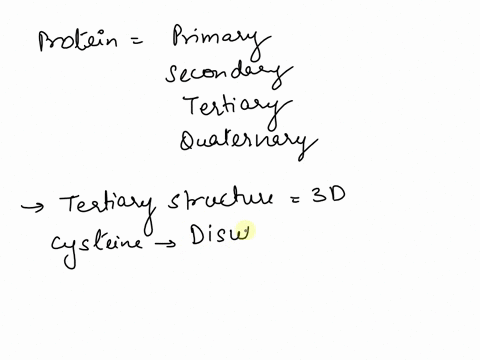 Protein = Primary
Secondary
Tertiary
Quaternary
→ Tertiary structure = 3D
Cysteine → Disu